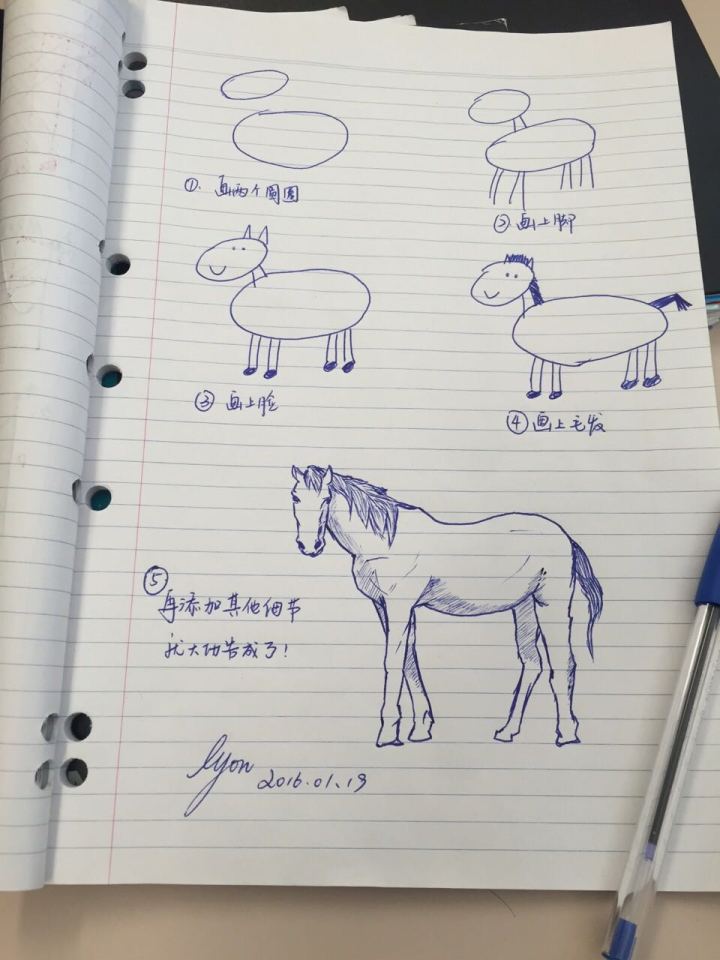 ①. 画两个圆圈
② 画上脚
③ 画上脸
④ 画上毛发
⑤
再添加其他细节
就大功告成了!
lyon 2016.01.19